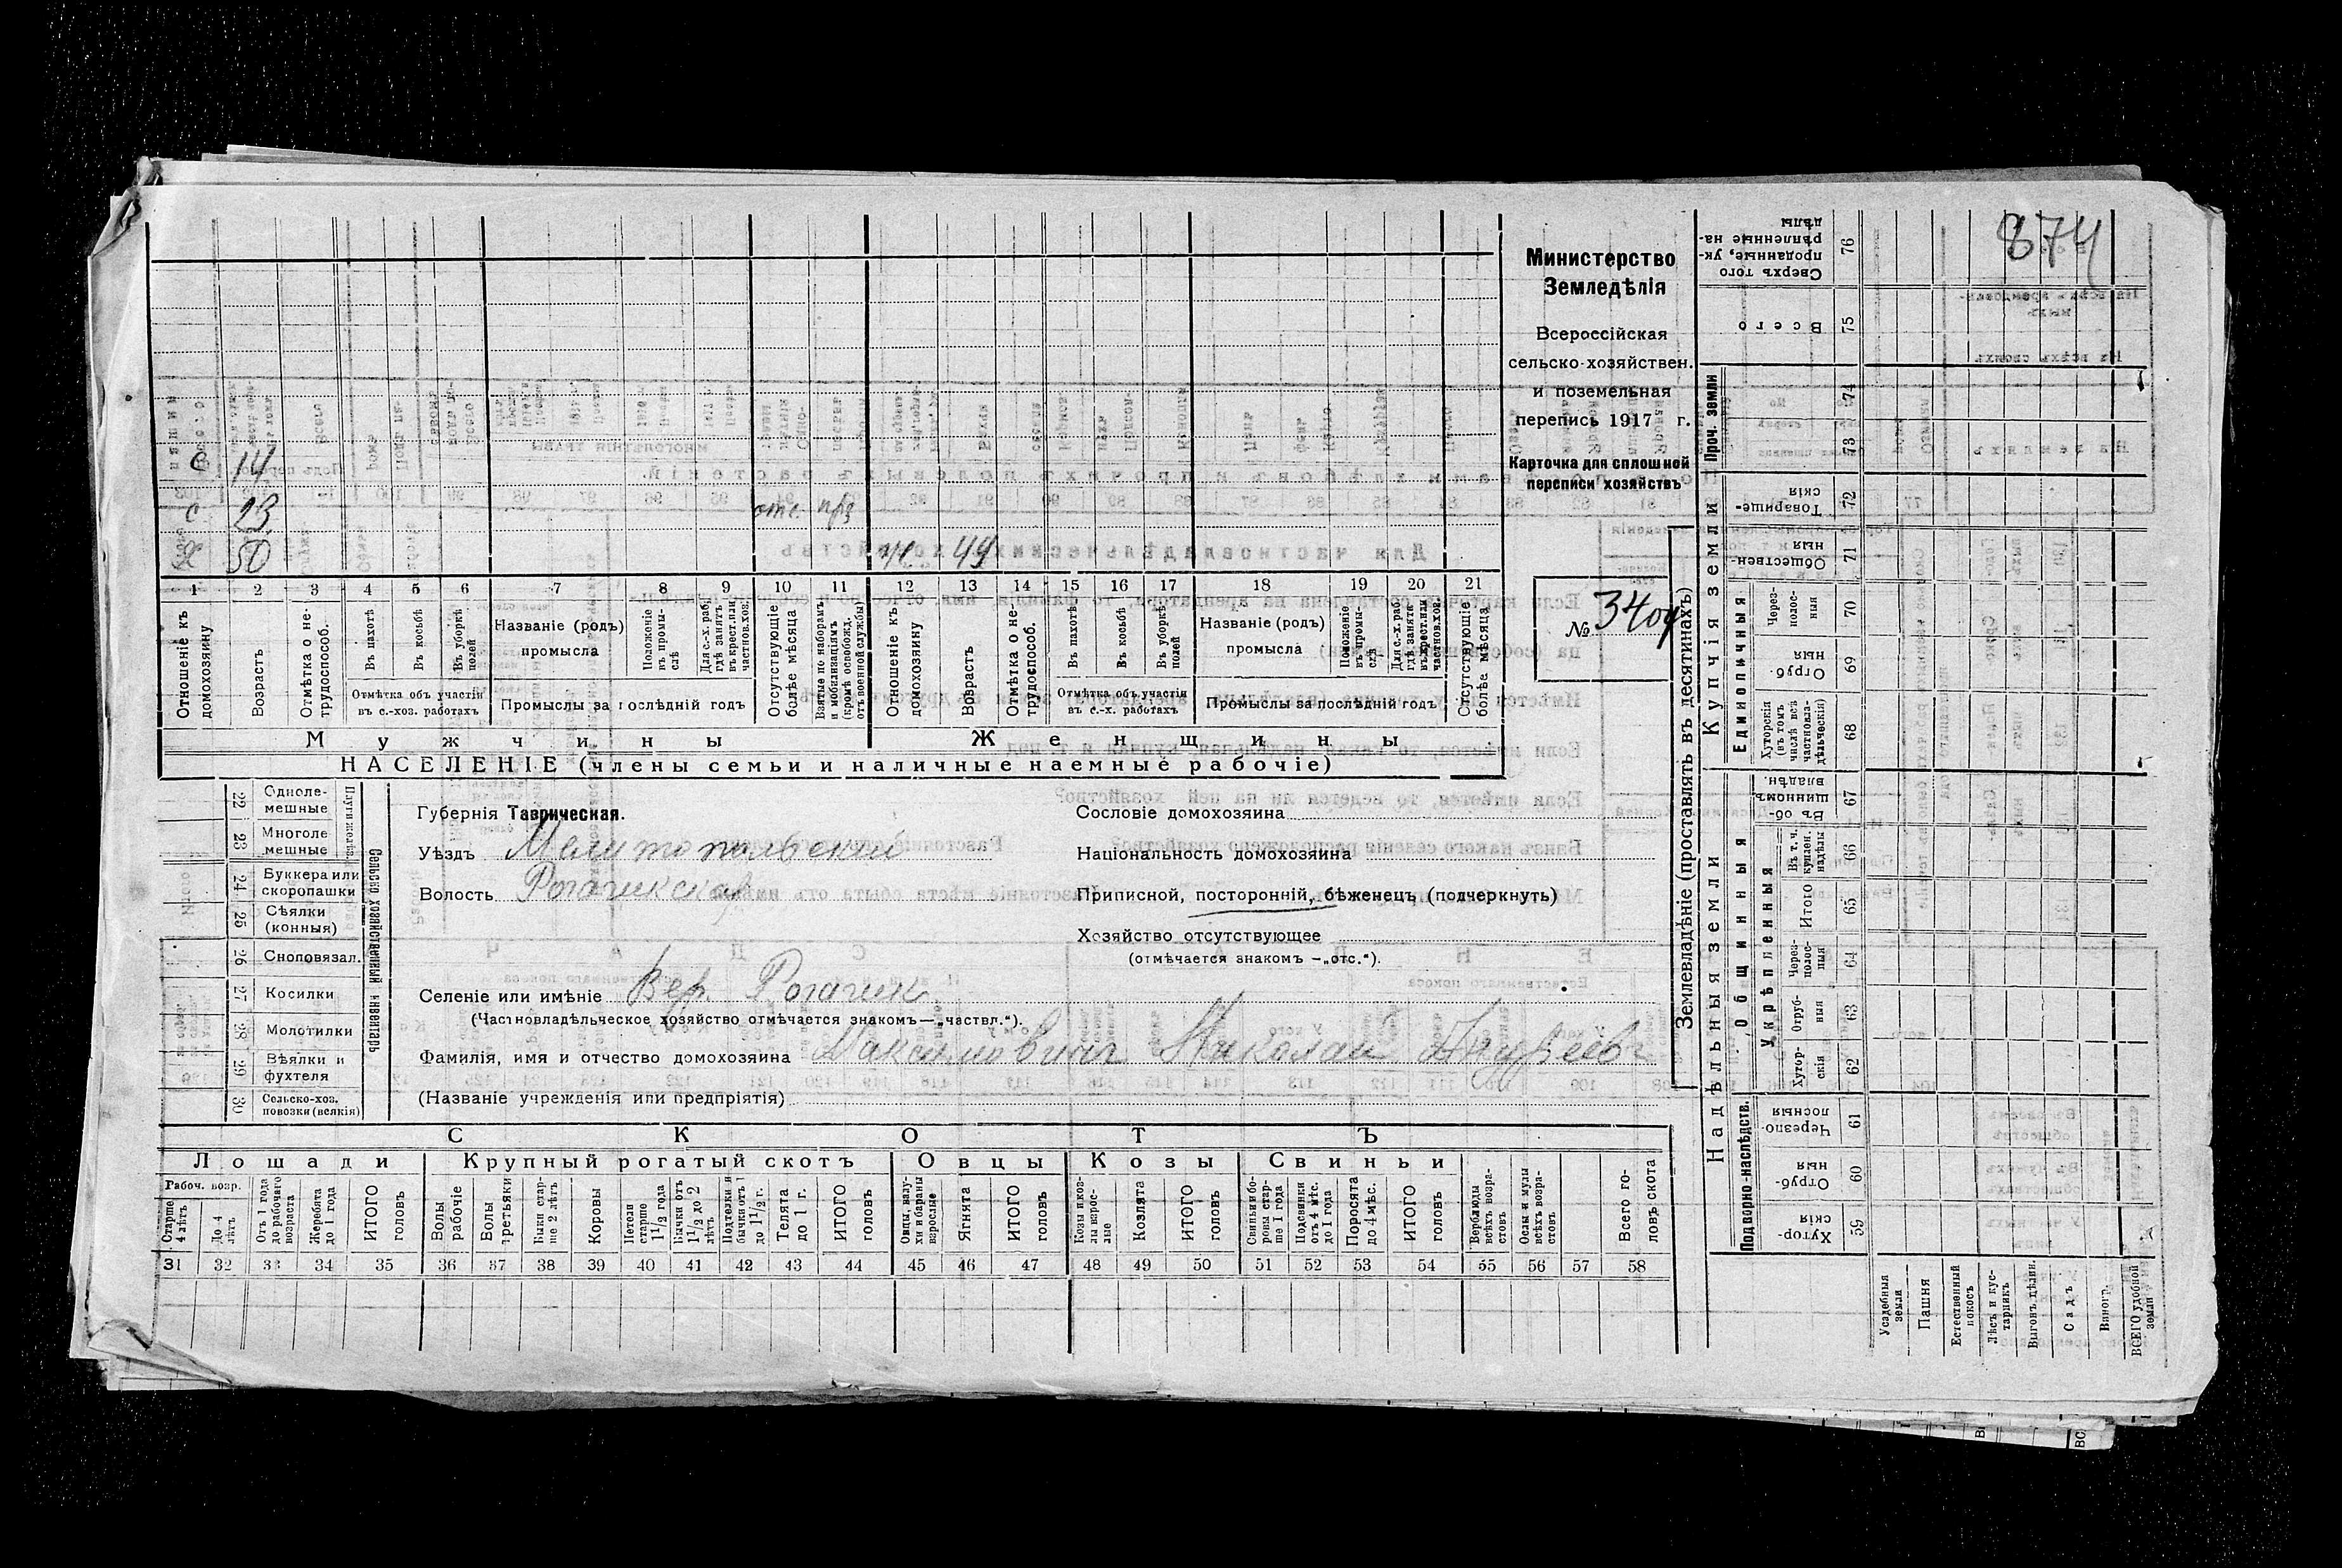 874
Министерство
Земледѣлія
Всероссійская
сельско-хозяйствен.
и поземельная
перепись 1917 г.
Карточка для сплошной
переписи хозяйствъ
№ 3404
с 14
с 23 отс. прз
х 50 ж. 49
1 2 3 4 5 6 7 8 9 10 11 12 13 14 15 16 17 18 19 20 21
Отношеніе къ домохозяину
Возрастъ
Отмѣтка о не-трудоспособ.
Въ пахотѣ
Въ косьбѣ
Въ уборкѣ полей
Отмѣтка объ участіи въ с.-хоз. работахъ
Названіе (родъ) промысла
Положеніе въ промы-слѣ
Для с.-х. раб. гдѣ занятъ въ крест. или частнов. хоз.
Промыслы за послѣдній годъ
Отсутствующіе болѣе мѣсяца
Взятые по наборамъ и мобилизаціямъ (кромѣ освобожд. отъ военной службы)
Отношеніе къ домохозяину
Возрастъ
Отмѣтка о не-трудоспособ.
Въ пахотѣ
Въ косьбѣ
Въ уборкѣ полей
Отмѣтка объ участіи въ с.-х. работахъ
Названіе (родъ) промысла
Положеніе въ промы-слѣ
Для с.-х. раб. гдѣ занята въ крест. или частнов. хоз.
Промыслы за послѣдній годъ
Отсутствующіе болѣе мѣсяца
Мужчины Женщины
НАСЕЛЕНІЕ (члены семьи и наличные наемные рабочіе)
22 Одноле-мешные
23 Многоле мешные
Плуги желѣз.
24 Буккера или скоропашки
25 Сѣялки (конныя)
26 Сноповязал.
27 Косилки
28 Молотилки
29 Вѣялки и фухтеля
30 Сельско-хоз. повозки (всякія)
Сельско хозяйственный инвентарь
Губернія Таврическая.
Уѣздъ Мелитопольскій
Волость Рогачикская
Селеніе или имѣніе Вер. Рогачик
(Частновладѣльческое хозяйство отмѣчается знакомъ—„частвл.“).
Фамилія, имя и отчество домохозяина Максимович Николай Андреев
(Названіе учрежденія или предпріятія)
Сословіе домохозяина
Національность домохозяина
Приписной, посторонній, бѣженецъ (подчеркнуть)
Хозяйство отсутствующее
(отмѣчается знакомъ —„отс.“).
СКОТЪ
Лошади Крупный рогатый скотъ Овцы Козы Свиньи
Рабоч. возр.
Старше 4 лѣтъ
До 4 лѣтъ
Отъ 1 года до рабочаго возраста
Жеребята до 1 года
ИТОГО головъ
Волы рабочіе
Волы третьяки
Быки стар-ше 2 лѣтъ
Коровы
Нетели старше 1½ года
Бычки отъ 1½ до 2 лѣтъ
Подтелки и бычки отъ 1 до 1½ г.
Телята до 1 г.
ИТОГО головъ
Овцы, валу-хи и бараны взрослые
Ягнята
ИТОГО головъ
Козы и коз-лы взрос-лые
Козлята
ИТОГО головъ
Свиньи и бо-ровы стар-ше 1 года
Подсвинки отъ 4 мѣс. до 1 года
Поросята до 4 мѣс.
ИТОГО головъ
Верблюды всѣхъ возра-стовъ
Ослы и мулы всѣхъ возра-стовъ
Всего го-ловъ скота
31 32 33 34 35 36 37 38 39 40 41 42 43 44 45 46 47 48 49 50 51 52 53 54 55 56 57 58
Землевладѣніе (проставлять въ десятинахъ)
Надѣльныя земли
Подворно-наслѣдств.
59 Хутор-скія
60 Отруб-ныя
61 Черезпо-лосныя
Общинныя
Укрѣпленныя
62 Хутор-скія
63 Отруб-ныя
64 Через-полос-ныя
65 Итого
66 Въ т. ч. куплен. надѣлы
67 Въ об-щинномъ владѣн.
Купчія земли
Единоличныя
68 Хуторскія (въ томъ числѣ всѣ частновла-дѣльческія)
69 Отруб-ныя
70 Через-полос-ныя
71 Обществен-ныя
72 Товарище-скія
Проч. земли
73
74
75 Всего
76 Сверхъ того проданные, ук-рѣпленные на-дѣлы
Усадебныя земли
Пашня
Естественный покосъ
Лѣсъ и кус-тарникъ
Выгонъ, цѣлин.
Садъ
Виногр.
ВСЕГО удобной земли